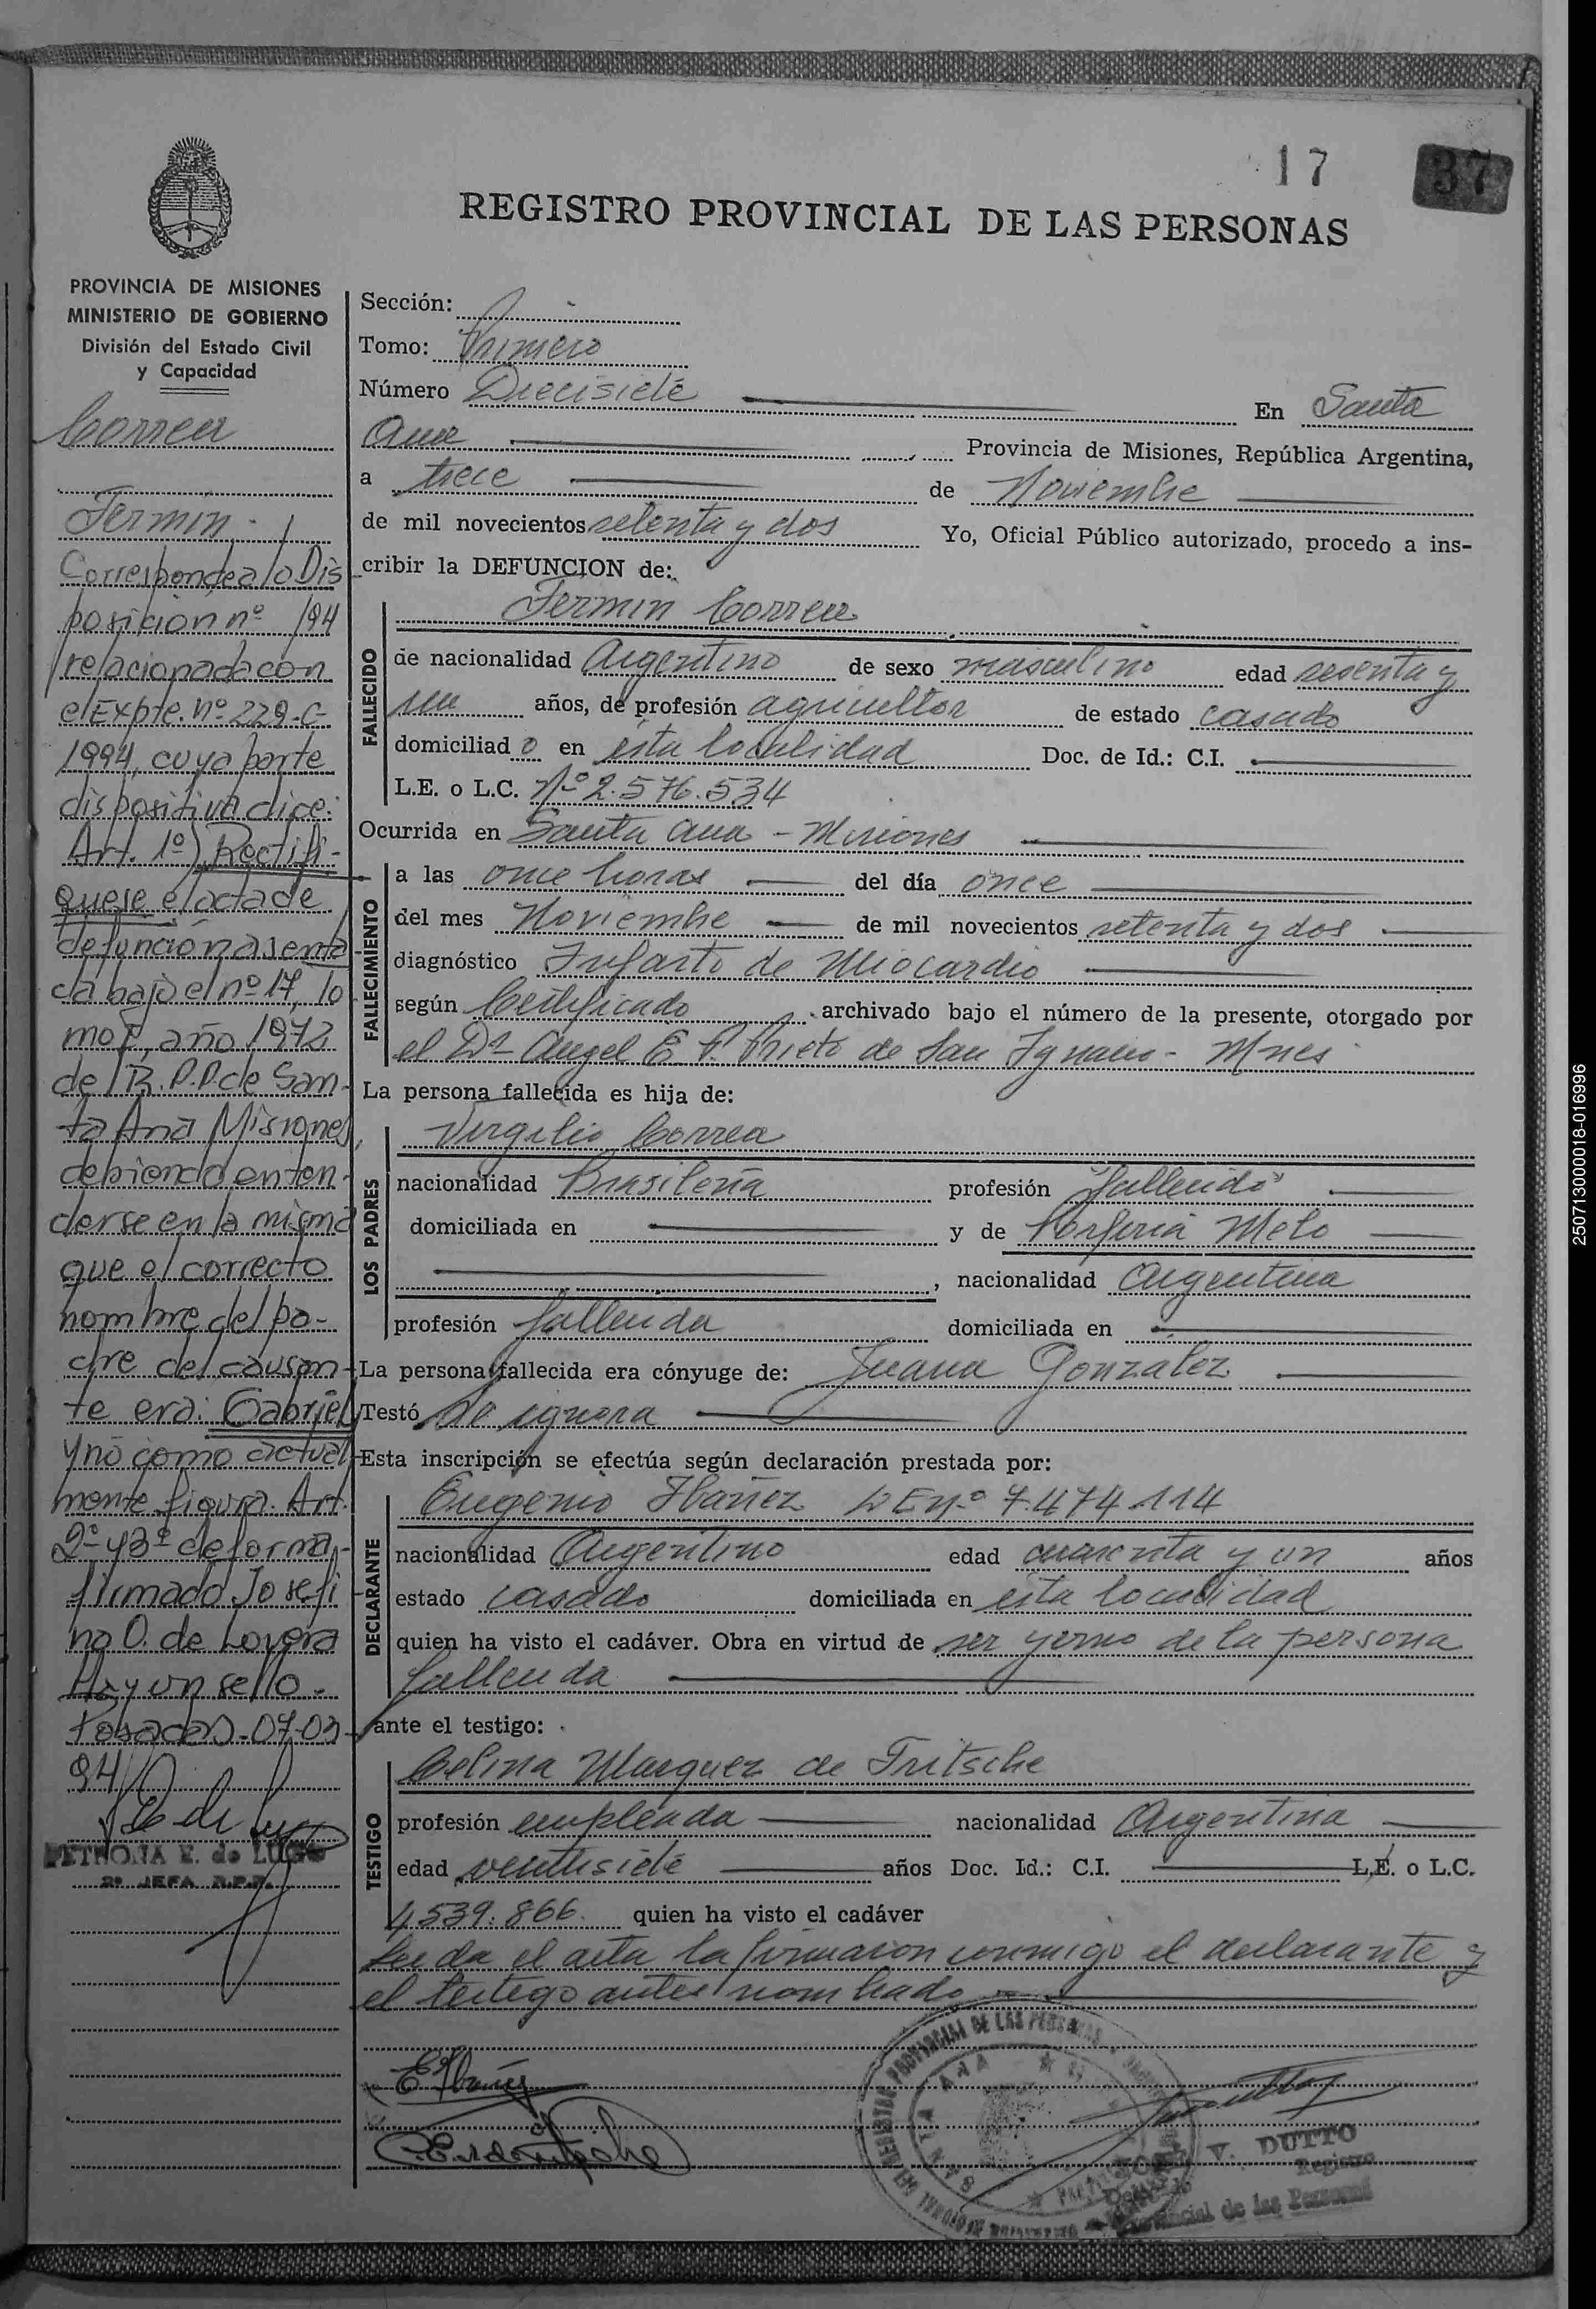 17 37
REGISTRO PROVINCIAL DE LAS PERSONAS
PROVINCIA DE MISIONES
MINISTERIO DE GOBIERNO
División del Estado Civil
y Capacidad
Correa
Fermin.
Corresponde a la Dis
posición nº 194
relacionada con
el Expte. nº 229-C-
1994, cuya parte
dispositiva dice:
Art. 1º) Rectifi-
quese el acta de
defunción asenta
da bajo el nº 17, to
mo Iº, año 1972
del R.P.P. de San-
ta Ana Misiones,
debiendo enten
derse en la misma
que el correcto
nombre del pa-
dre del causan-
te era: Gabriel
y no como actual
mente figura. Art.
2º y 3º de forma,-
firmado Josefi
na O. de Lovera
Hay un sello.-
Posadas-07-03-
94//
PETRONA E. de LUGO
2º JEFA R.P.P.
Sección:
Tomo: Primero
Número Diecisiete En Santa
Ana Provincia de Misiones, República Argentina,
a trece de Noviembre
de mil novecientos setenta y dos Yo, Oficial Público autorizado, procedo a ins-
cribir la DEFUNCION de:
Fermin Correa
FALLECIDO
de nacionalidad Argentino de sexo masculino edad sesenta y
un años, de profesión agricultor de estado casado
domiciliad o en ésta localidad Doc. de Id.: C.I.
L.E. o L.C. Nº 2.576.534
Ocurrida en Santa Ana - Misiones
FALLECIMIENTO
a las once horas del día once
del mes Noviembre de mil novecientos setenta y dos
diagnóstico Infarto de Miocardio
según Certificado archivado bajo el número de la presente, otorgado por
el Dr. Angel E. F. Prieto de San Ignacio - Mnes
La persona fallecida es hija de:
LOS PADRES
Virgilio Correa
nacionalidad Brasileña profesión "fallecido"
domiciliada en y de Porfiria Melo
, nacionalidad Argentina
profesión fallecida domiciliada en
La persona fallecida era cónyuge de: Juana Gonzalez
Testó se ignora
Esta inscripción se efectúa según declaración prestada por:
DECLARANTE
Eugenio Ibañez L E nº 7.474.114
nacionalidad Argentino edad cuarenta y un años
estado casado domiciliada en ésta localidad
quien ha visto el cadáver. Obra en virtud de ser yerno de la persona
fallecida
ante el testigo:
TESTIGO
Celina Marquez de Fritsche
profesión empleada nacionalidad Argentina
edad veintisiete años Doc. Id.: C.I. L.E. o L.C.
4.539.866. quien ha visto el cadáver
Leida el acta la firmaron conmigo el declarante y
el testigo antes nombrado
E Ibañez
V. DUTTO
Registro
Provincial de las Personas
SANTA ANA
250713000018-016996